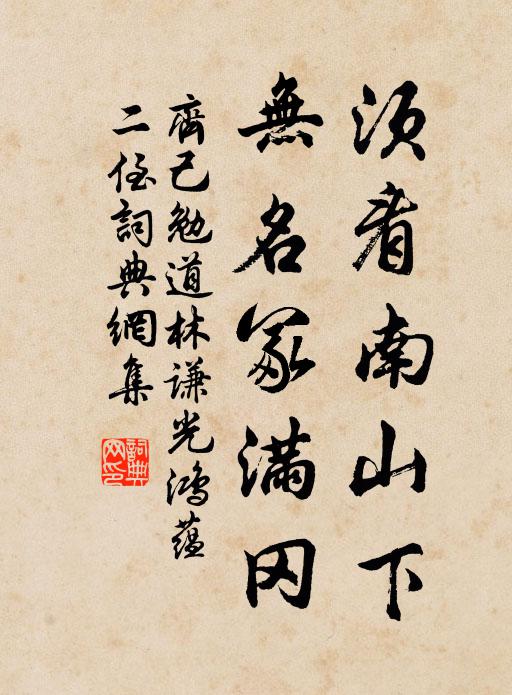 須看南山下
無名冢滿岡
齊己勉道林謙光鴻蘊
二侄詞典網集
詞典網印